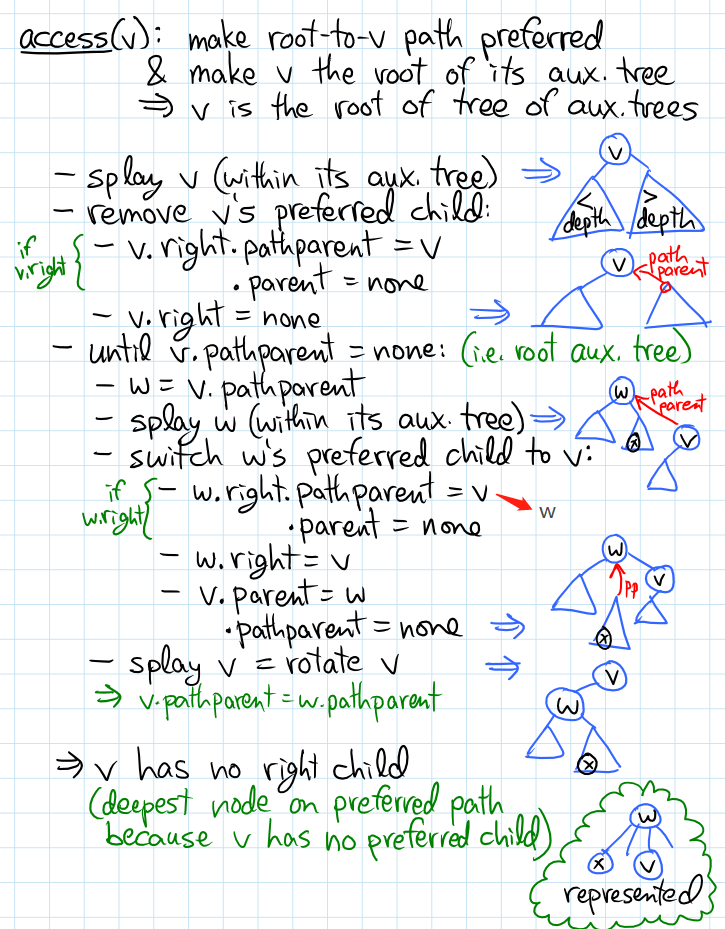 access(v): make root-to-v path preferred
& make v the root of its aux. tree
⇒ v is the root of tree of aux.trees
- splay v (within its aux. tree) ⇒
v
< depth
> depth
- remove v's preferred child:
if v.right {
- v.right.pathparent = v
.parent = none
- v.right = none ⇒
v
path parent
- until v.pathparent = none: (i.e. root aux. tree)
- w = v.pathparent
- splay w (within its aux. tree) ⇒
w
path parent
x
v
- switch w's preferred child to v:
if w.right {
- w.right.pathparent = v
w
.parent = none
- w.right = v
- v.parent = w
.pathparent = none ⇒
w
v
pp
x
- splay v = rotate v ⇒
⇒ v.pathparent = w.pathparent
v
w
x
⇒ v has no right child
(deepest node on preferred path
because v has no preferred child)
w
x
v
represented